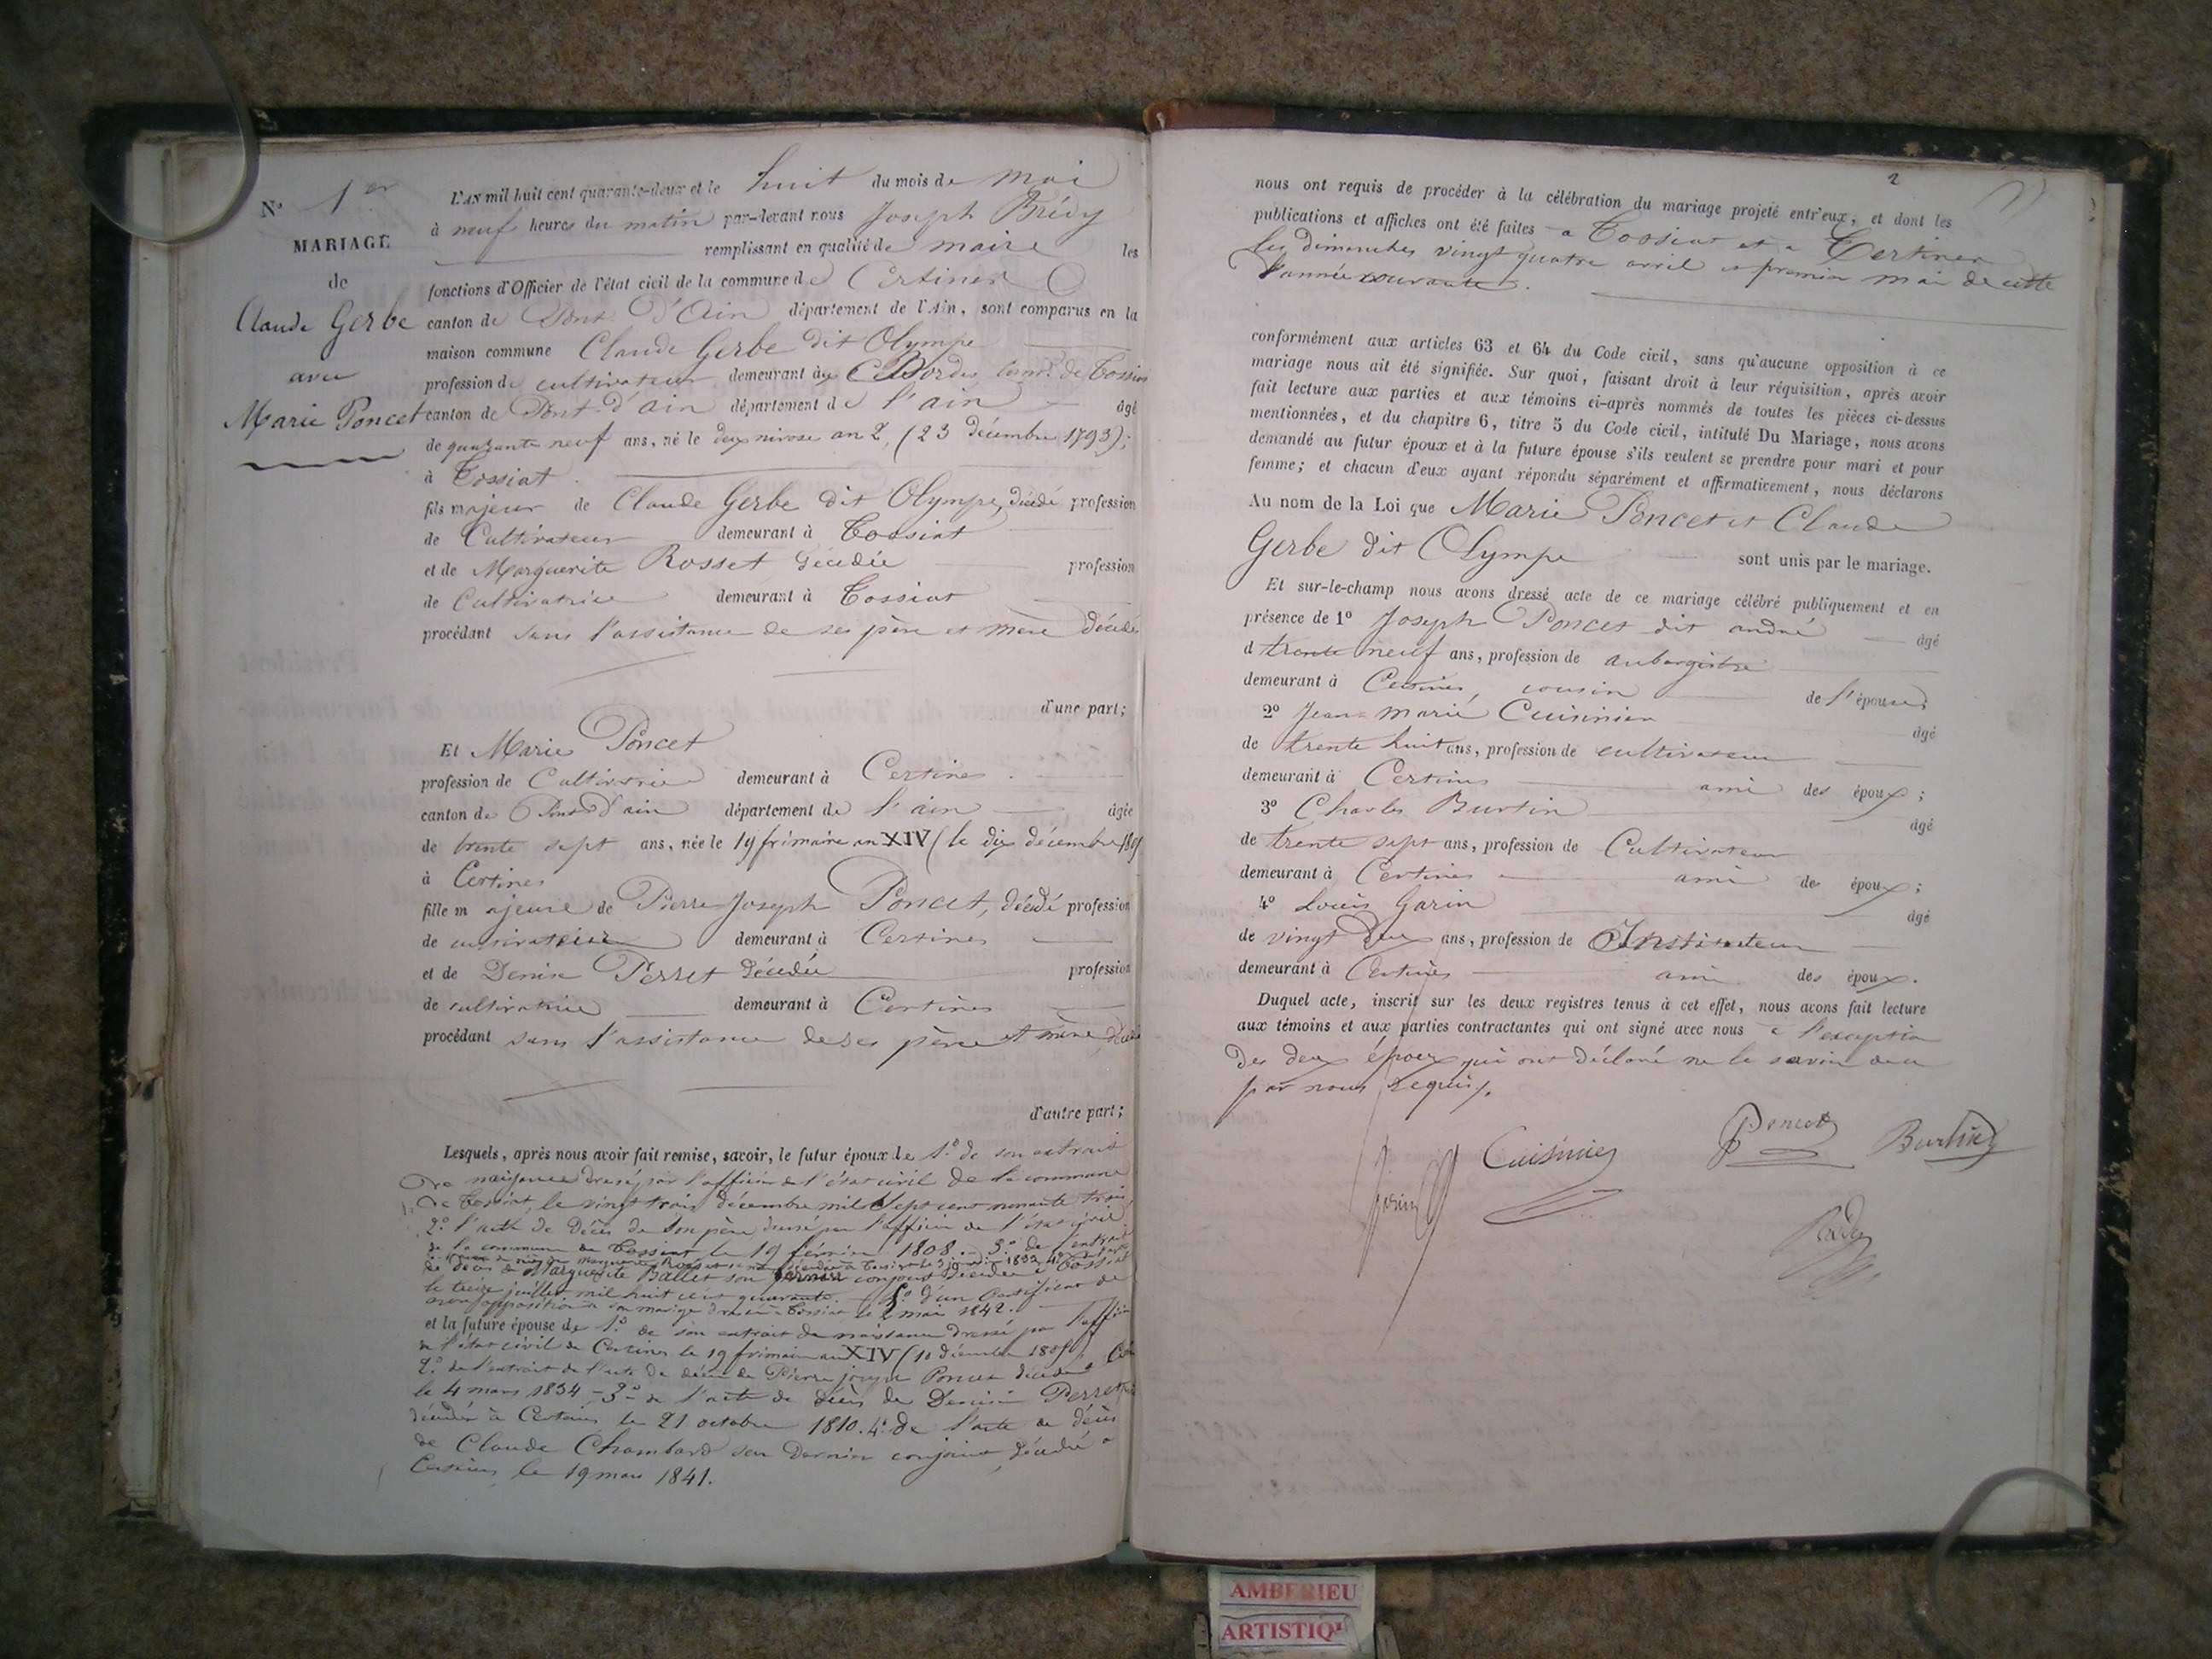 N° 1er
MARIAGE
de
Claude Gerbe
avec
Marie Poncet
L'AN mil huit cent quarante-deux et le huit du mois de mai
à neuf heures du matin par-devant nous Joseph
remplissant en qualité de maire les
fonctions d'Officier de l'état civil de la commune de Certines
canton de Pont D'Ain département de l'Ain, sont comparus en la
maison commune Claude Gerbe dit Olympe
profession de cultivateur demeurant aux Bordes Comne de Tossiat
canton de Pont-d'ain département de l'ain âgé
de quarante neuf ans, né le deux nivose an 2, (23 décembre 1793);
à Tossiat.
fils majeur de Claude Gerbe dit Olympe, décédé profession
de Cultivateur demeurant à Tossiat
et de Marguerite Rosset décédée profession
de Cultivatrice demeurant à Tossiat
procédant sans l'assistance de ses père et mère décédés
d'une part;
Et Marie Poncet
profession de Cultivatrice demeurant à Certines.
canton de Pont D'ain département de l'ain âgée
de trente sept ans, née le 19 frimaire an XIV (le dix décembre 1805
à Certines
fille majeure de Pierre Joseph Poncet, décédé profession
de demeurant à Certines
et de Denise Perret décédée profession
de cultivatrice demeurant à Certines
procédant sans l'assistance de ses père et mère
d'autre part;
Lesquels, après nous avoir fait remise, savoir, le futur époux de 1° de son extrait
de naissance dressé par l'officier de l'état civil de la commune
de Tossiat, le vingt trois décembre mil sept cent nonante trois,
2° l'acte de décès de son père dressé par l'officier de l'état civil
de la commune de Tossiat le 19 février 1808. - 3° de l'extrait
de décès de Marguerite Ballet son dernier conjoint décédée à Tossiat
le treize juillet mil huit cent quarante. - 5° d'un certificat de
non opposition à son mariage dressé à Tossiat le 2 mai 1842.
et la future épouse de 1° de son extrait de naissance dressé par l'officier
de l'état civil de Certines le 19 frimaire an XIV (10 décembre 1805)
2° de l'extrait de l'acte de décès de Pierre joseph Poncet décédé à
le 4 mars 1834 - 3° de l'acte de décès de Denise Perret
décédée à Certines le 21 octobre 1810. 4° de l'acte de décès
de Claude Chambard son dernier conjoint, décédé à
Certines le 19 mars 1841.
2
nous ont requis de procéder à la célébration du mariage projeté entr'eux, et dont les
publications et affiches ont été faites a Tossiat et a Certines
les dimanches vingt quatre avril et premier mai de cette
l'année courante.
conformément aux articles 63 et 64 du Code civil, sans qu'aucune opposition à ce
mariage nous ait été signifiée. Sur quoi, faisant droit à leur réquisition, après avoir
fait lecture aux parties et aux témoins ci-après nommés de toutes les pièces ci-dessus
mentionnées, et du chapitre 6, titre 5 du Code civil, intitulé Du Mariage, nous avons
demandé au futur époux et à la future épouse s'ils veulent se prendre pour mari et pour
femme; et chacun d'eux ayant répondu séparément et affirmativement, nous déclarons
Au nom de la Loi que Marie Poncet et Claude
Gerbe dit Olympe sont unis par le mariage.
Et sur-le-champ nous avons dressé acte de ce mariage célébré publiquement et en
présence de 1° Joseph Poncet dit andré âgé
d trente neuf ans, profession de aubergiste
demeurant à Certines, cousin de l'épouse;
2° Jean-marie Cuisinier âgé
de trente huit ans, profession de cultivateur
demeurant à Certines ami des époux;
3° Charles Burtin âgé
de trente sept ans, profession de Cultivateur
demeurant à Certines ami des époux;
4° Louis Garin âgé
de vingt deux ans, profession de Instituteur
demeurant à Certines ami des époux.
Duquel acte, inscrit sur les deux registres tenus à cet effet, nous avons fait lecture
aux témoins et aux parties contractantes qui ont signé avec nous a l'exception
des deux époux qui ont déclaré ne le savoir de ce
par nous requis.
Garin Cuisinier Poncet Burtin
AMBERIEU
ARTISTIQ